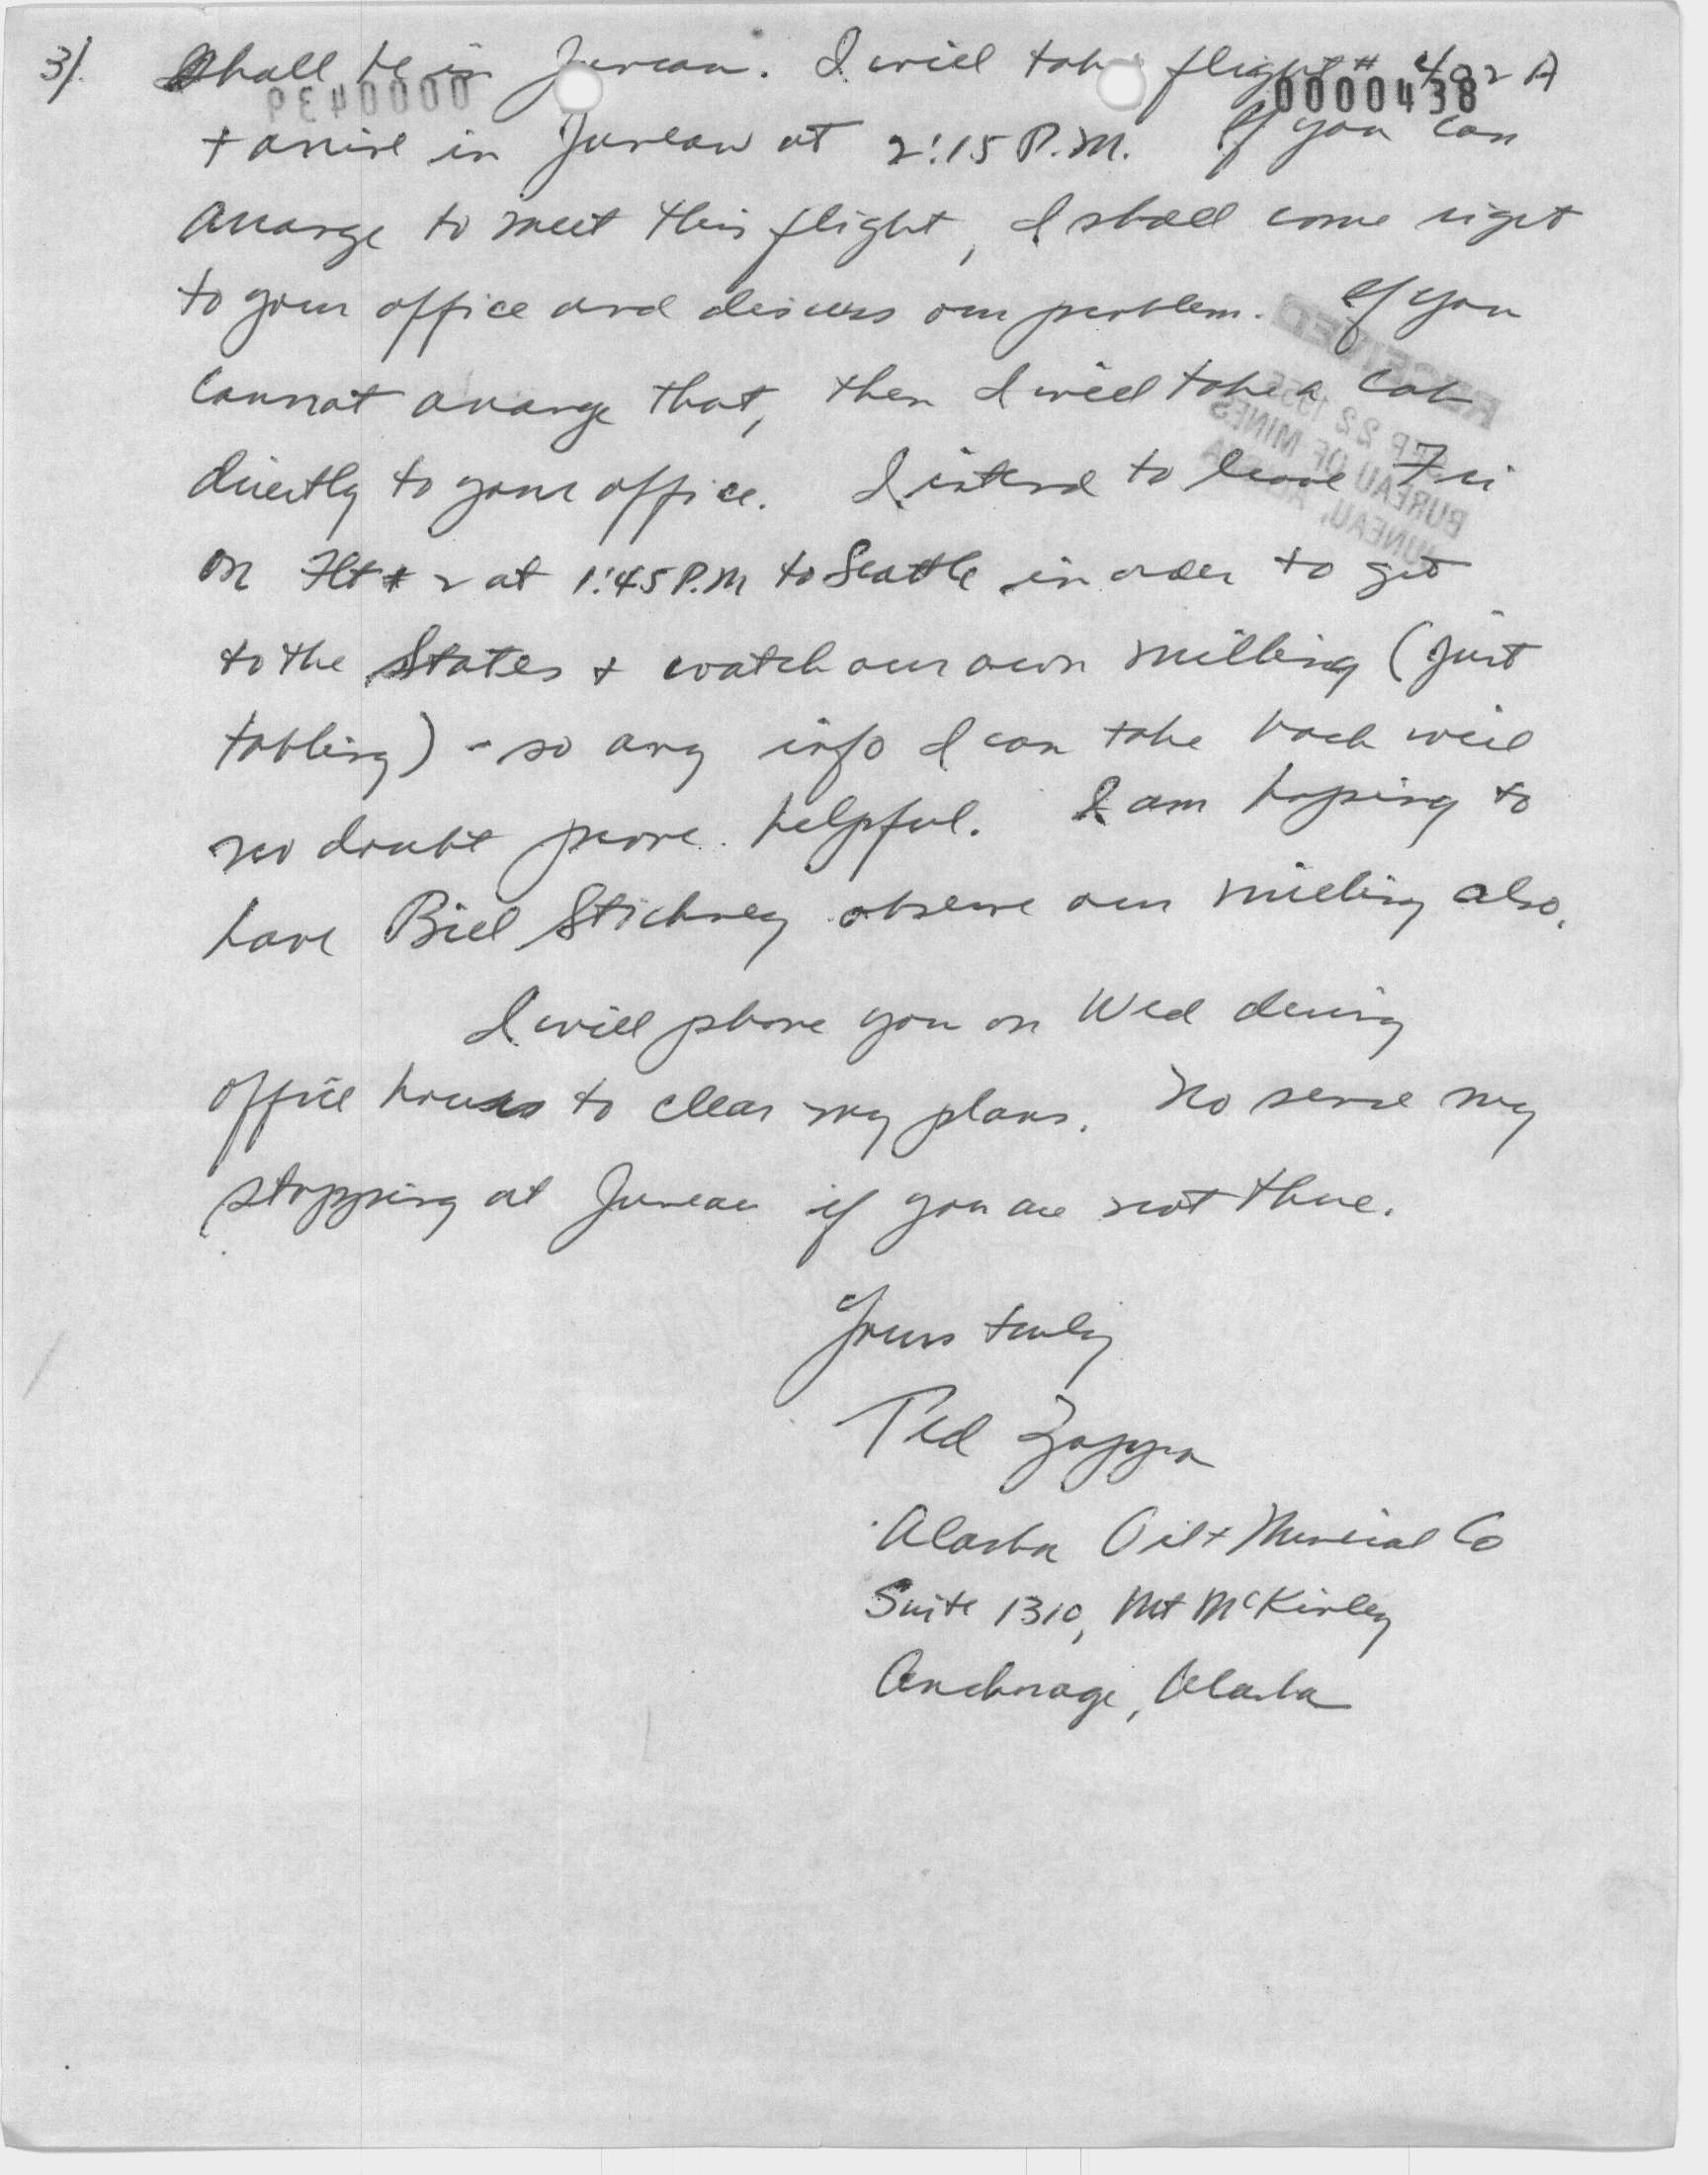 3/. Shall be in Juneau. I will take flight # 402 A
0000438
+ arrive in Juneau at 2:15 P.M. If you can
arrange to meet this flight, I shall come right
to your office and discuss our problem. If you
cannot arrange that, then I will take a cab
directly to your office. I intend to leave Fri
on Flt # 2 at 1:45 P.M to Seattle in order to get
to the States + watch our own milling (just
tabling) - so any info I can take back will
no doubt prove helpful. I am hoping to
have Bill Stickney observe our milling also.
I will phone you on Wed during
office hours to clear my plans. No sense my
stopping at Juneau if you are not there.
Yours truly
Ted Zappa
Alaska Oil + Mineral Co
Suite 1310, Mt McKinley
Anchorage, Alaska
RECEIVED
SEP 22 195
BUREAU OF MINES
JUNEAU,